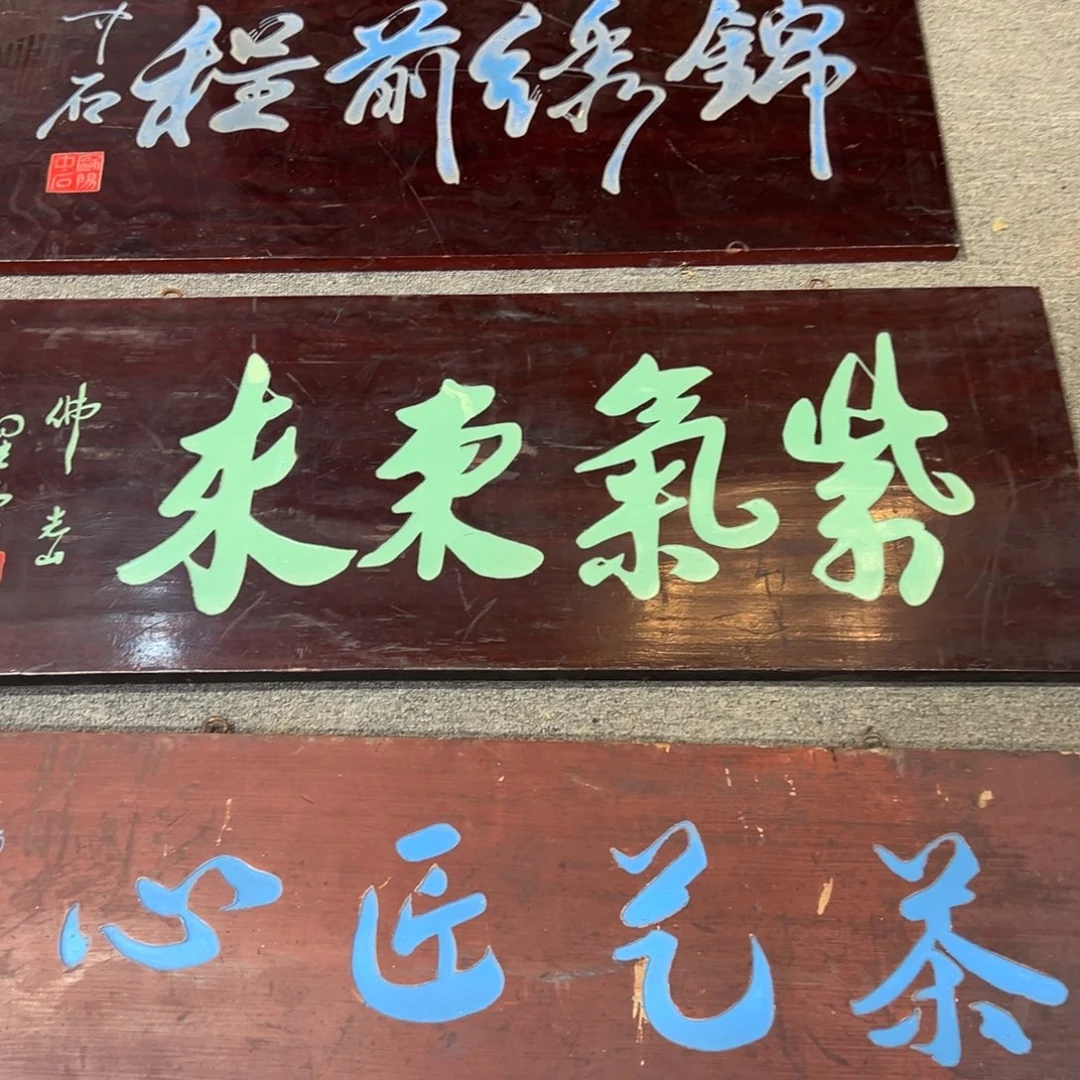 錦绣前程
中石
歐陽中石
紫氣東来
佛
茶艺匠心